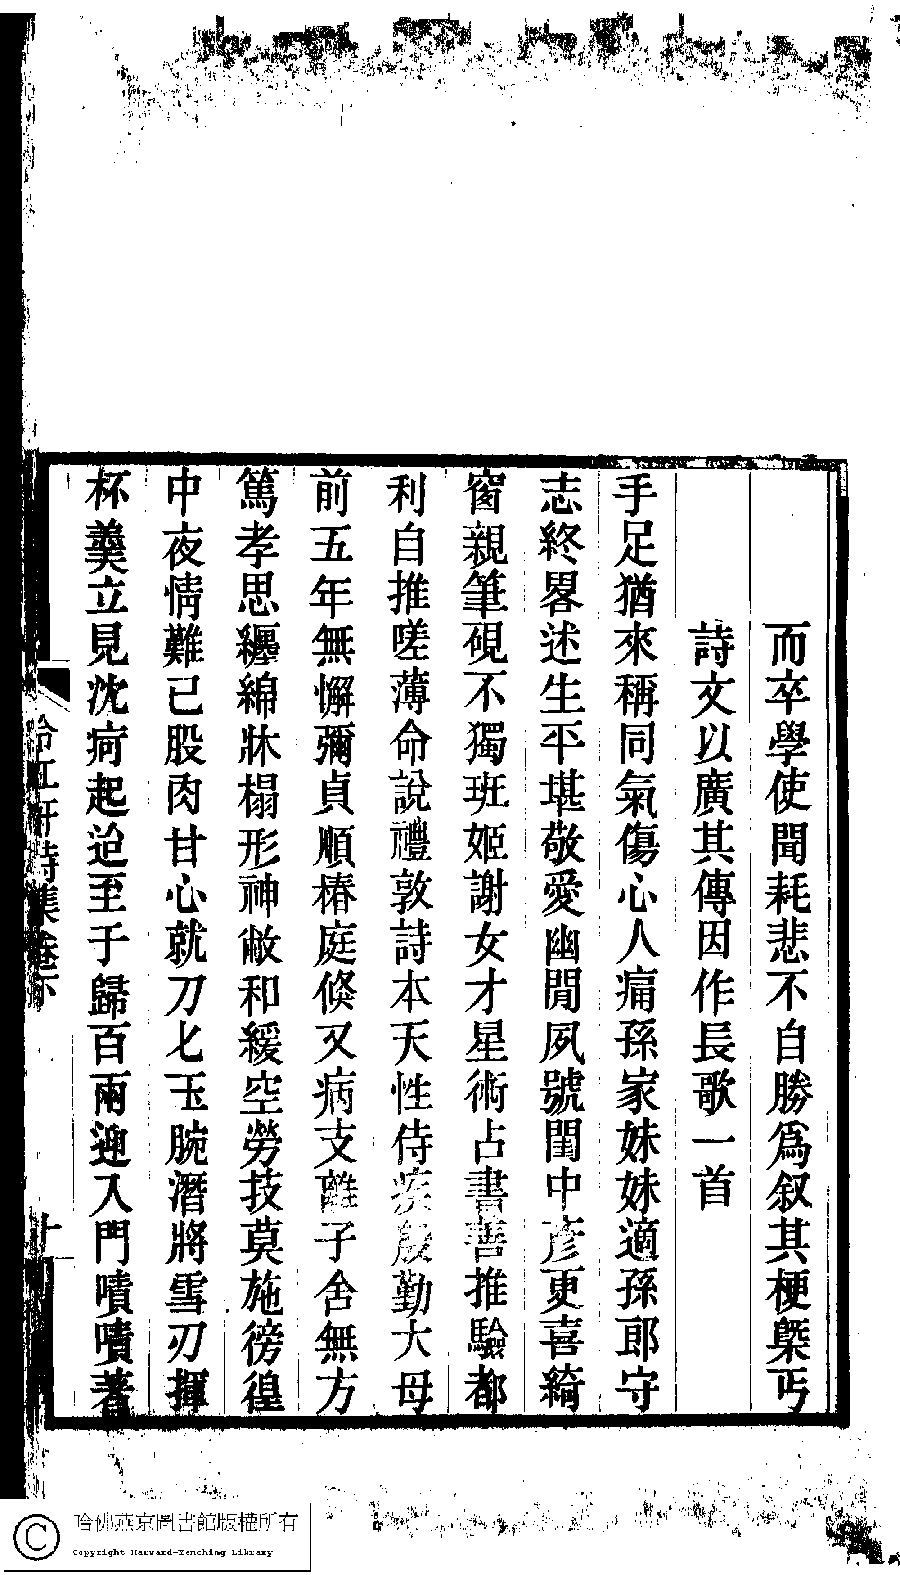 而卒學使聞耗悲不自勝爲叙其梗槩丐
詩文以廣其傳因作長歌一首
手足猶來稱同氣傷心人痛孫家妹妹適孫郎守
志終畧述生平堪敬愛幽閒夙號閨中彦更喜綺
窗親筆硯不獨班姬謝女才星術占書善推驗都
利自推嗟薄命說禮敦詩本天性侍疾殷勤大母
前五年無懈彌貞順椿庭倐又病支離子舍無方
篤孝思纒綿牀榻形神敝和緩空勞技莫施徬徨
中夜情難已股肉甘心就刀匕玉腕潛將雪刃揮
杯羹立見沈疴起迨至于歸百兩迎入門嘖嘖著
冷紅軒詩集卷下
十
哈佛燕京圖書館版權所有
Copyright Harvard-Yenching Library